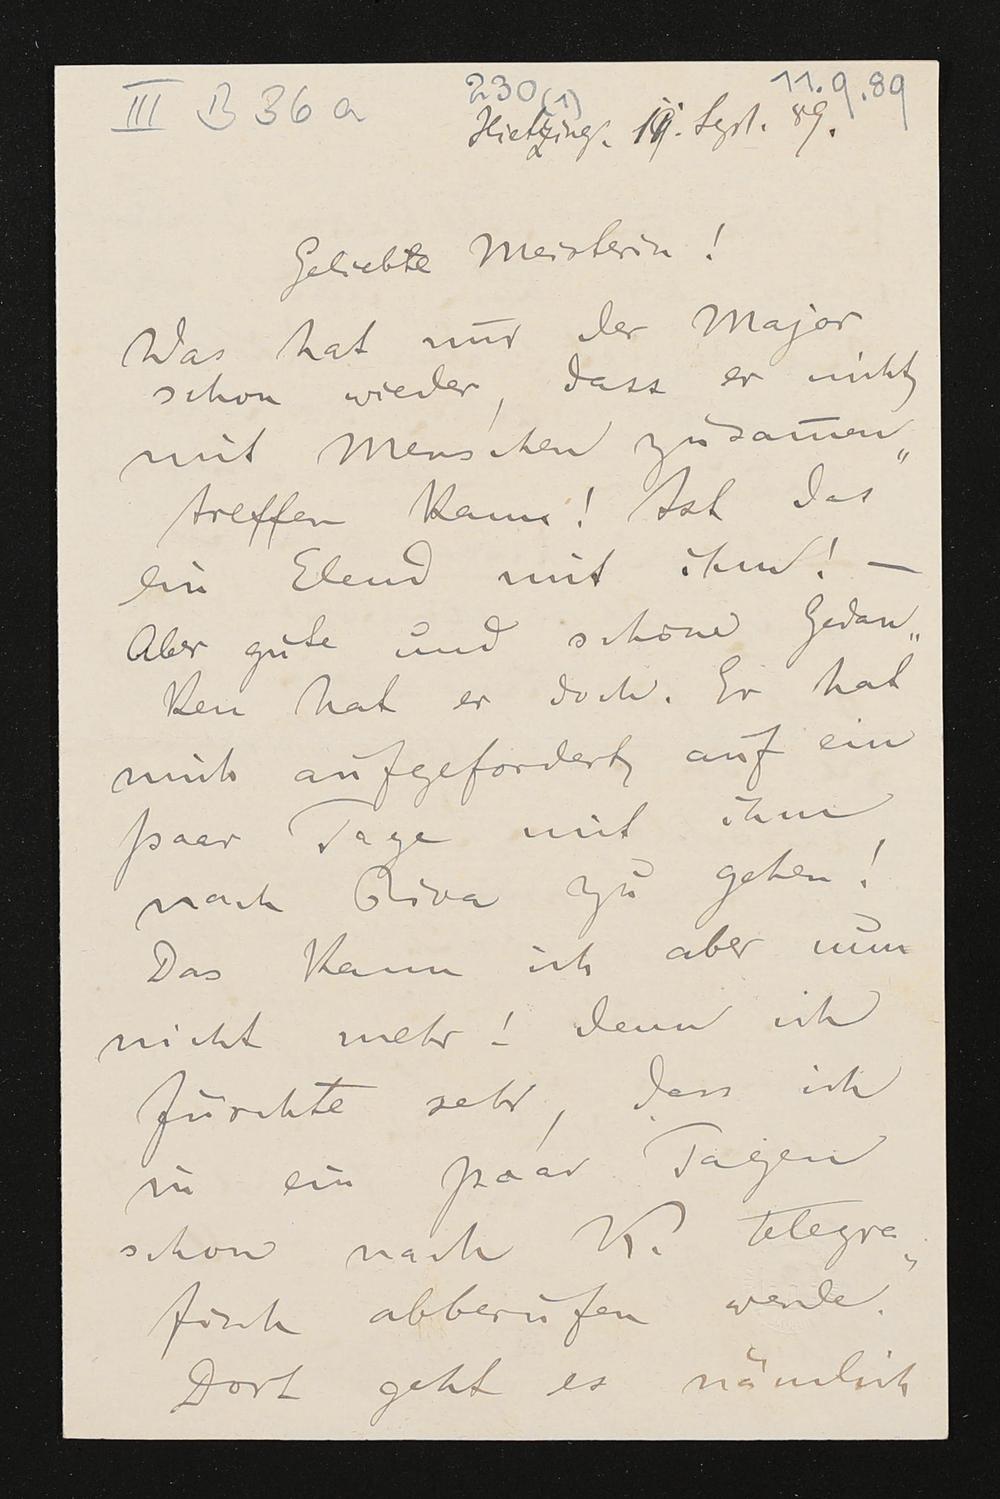 III B 36 a
230 (1)
11.9.89
Hietzing. 11. Sept. 89.
Geliebte Meisterin!
Was hat nur der Major
schon wieder, dass er nicht
mit Menschen zusam̄en„
treffen kann! Ist das
ein Elend mit ihm! —
Aber gute und schöne Gedan„
ken hat er doch. Er hat
mich aufgefordert, auf ein
paar Tage mit ihm
nach Riva zu gehen!
Das kann ich aber nun
nicht mehr! denn ich
fürchte sehr, dass ich
in ein paar Tagen
schon nach K. telegra„
fisch abberufen werde.
Dort geht es nämlich